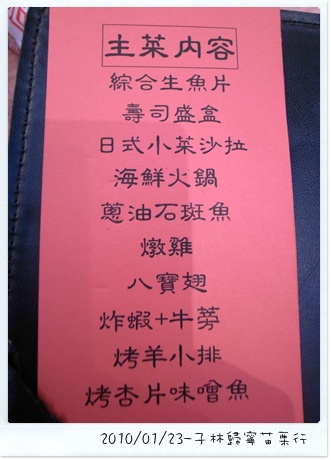 主菜内容
綜合生魚片
壽司盛盒
日式小菜沙拉
海鮮火鍋
蔥油石斑魚
燉雞
八寶翅
炸蝦+牛蒡
烤羊小排
烤杏片味噌魚
2010/01/23-子林歸寧苗栗行